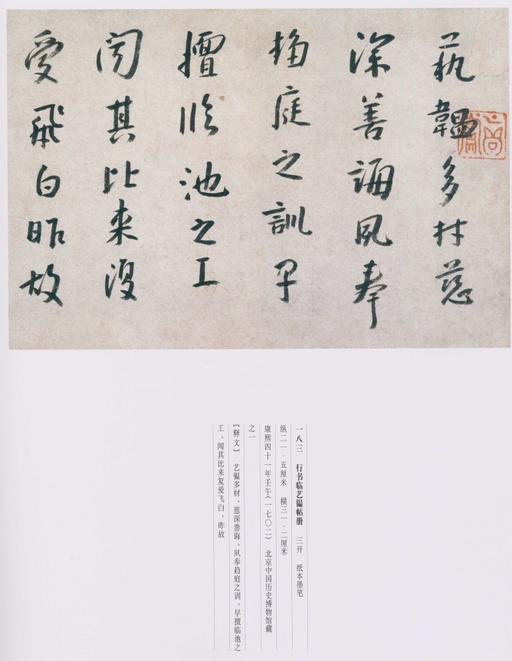 藝韞多材慈
深善誨夙奉
趨庭之訓早
擅臨池之工
聞其比来復
愛飛白昨故
一八三 行书临艺韫帖册 三开 纸本墨笔
纵二一·五厘米 横三一·二厘米
康熙四十一年壬午(一七〇二) 北京中国历史博物馆藏
之一
【释文】 艺韫多材、慈深善诲、夙奉趋庭之训、早擅临池之
工、闻其比来复爱飞白、昨故